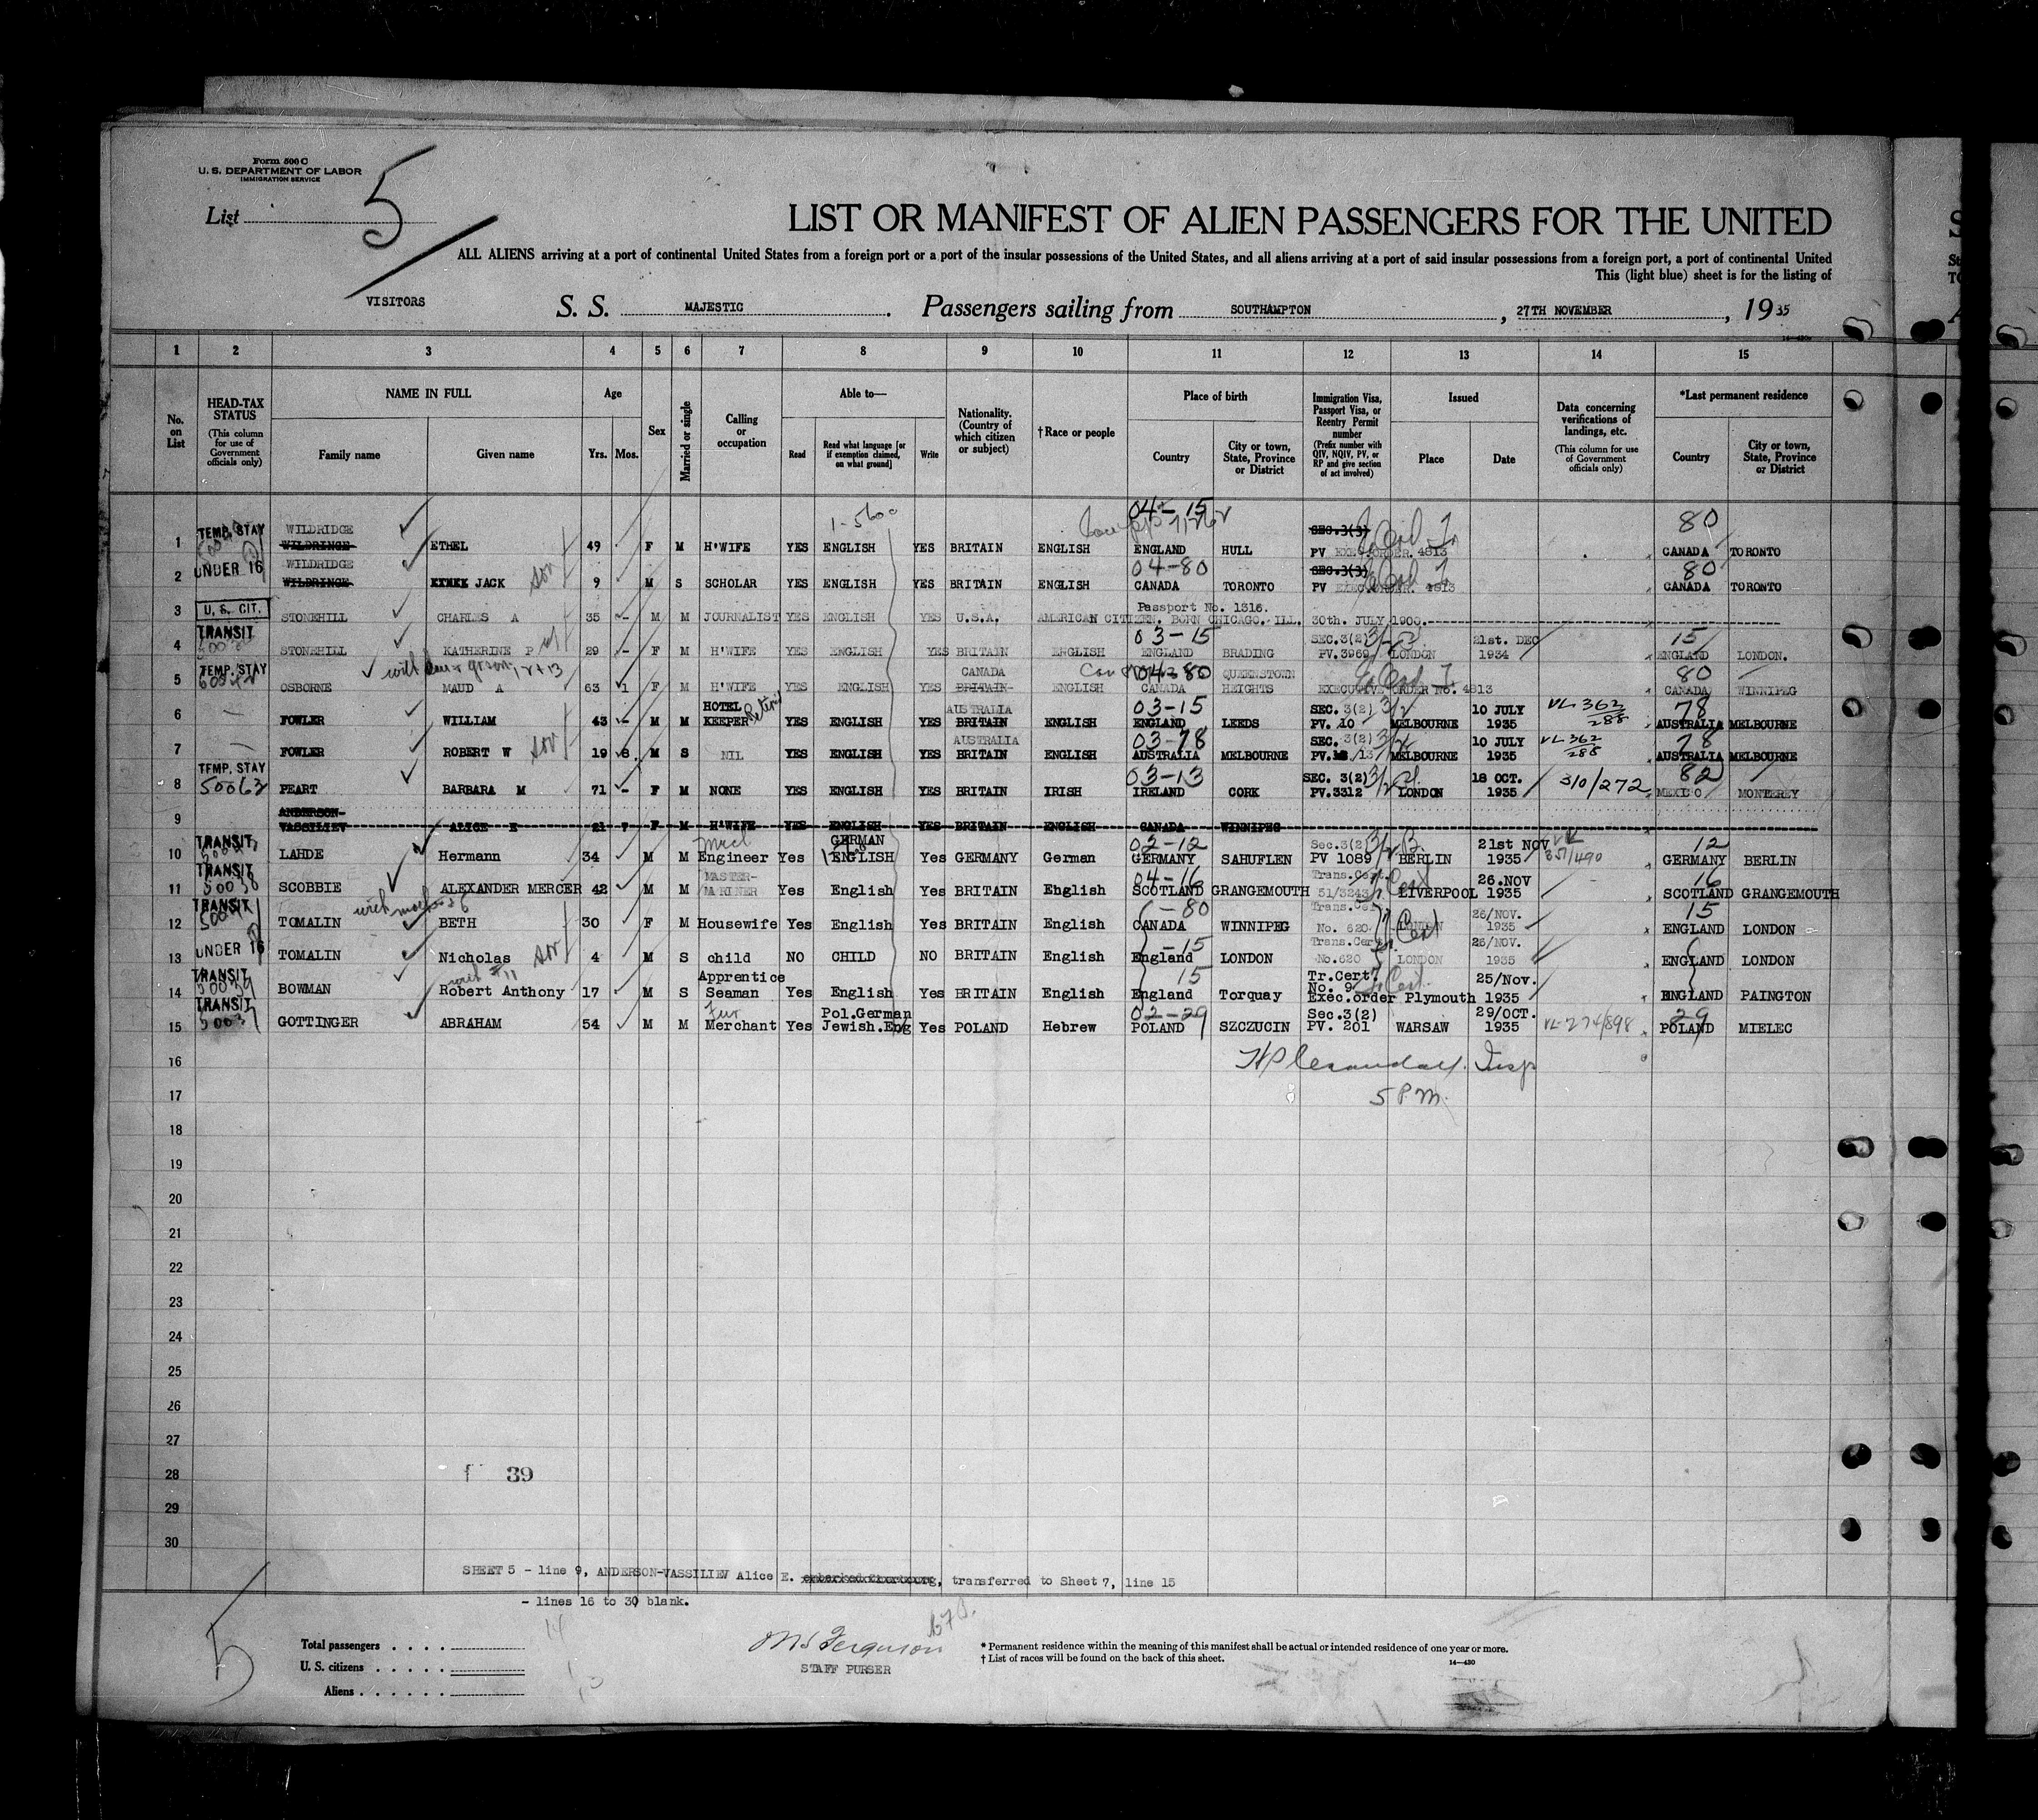 Form 500 C
U. S. DEPARTMENT OF LABOR
IMMIGRATION SERVICE
List 5
LIST OR MANIFEST OF ALIEN PASSENGERS FOR THE UNITED
ALL ALIENS arriving at a port of continental United States from a foreign port or a port of the insular possessions of the United States, and all aliens arriving at a port of said insular possessions from a foreign port, a port of continental United
This (light blue) sheet is for the listing of
VISITORS S. S. MAJESTIC. Passengers sailing from SOUTHAMPTON, 27TH NOVEMBER, 1935
14—430
1 2 3 4 5 6 7 8 9 10 11 12 13 14 15
No. on List
HEAD-TAX STATUS (This column for use of Government officials only)
NAME IN FULL Family name Given name
Age Yrs. Mos.
Sex
Married or single
Calling or occupation
Able to— Read Read what language [or if exemption claimed, on what ground] Write
Nationality. (Country of which citizen or subject)
†Race or people
Place of birth Country City or town, State, Province or District
Immigration Visa, Passport Visa, or Reentry Permit number (Prefix number with QIV, NQIV, PV, or RP and give section of act involved)
Issued Place Date
Data concerning verifications of landings, etc. (This column for use of Government officials only)
*Last permanent residence Country City or town, State, Province or District
TEMP. STAY WILDRIDGE 04-15 SEC.3(3) 80
1 WILDRINGE ETHEL 49 F M H'WIFE YES ENGLISH YES BRITAIN ENGLISH ENGLAND HULL PV EXEC.ORDER. 4813 CANADA TORONTO
UNDER 16 WILDRIDGE 04-80 SEC.3(3) 80
2 WILDRINGE JACK son 9 M S SCHOLAR YES ENGLISH YES BRITAIN ENGLISH CANADA TORONTO PV EXEC.ORDER. 4813 CANADA TORONTO
U. S. CIT. Passport No. 1316.
3 STONEHILL CHARLES A 35 M M JOURNALIST YES ENGLISH YES U.S.A. AMERICAN CITIZEN. BORN CHICAGO. ILL. 30th. JULY 1900.
TRANSIT 03-15 SEC.3(2) 21st. DEC 15
4 STONEHILL KATHERINE P 29 - F M H'WIFE YES ENGLISH YES BRITAIN ENGLISH ENGLAND BRADING PV.3969 LONDON 1934 ENGLAND LONDON.
TEMP. STAY CANADA 04-80 QUEENSTOWN 80
5 OSBORNE MAUD A 63 1 F M H'WIFE YES ENGLISH YES BRITAIN ENGLISH CANADA HEIGHTS EXECUTIVE ORDER No. 4813 CANADA WINNIPEG
HOTEL Retired AUSTRALIA 03-15 SEC. 3(2) 10 JULY VL 362/288 78
6 FOWLER WILLIAM 43 - M M KEEPER YES ENGLISH YES BRITAIN ENGLISH ENGLAND LEEDS PV. 10 MELBOURNE 1935 AUSTRALIA MELBOURNE
AUSTRALIA 03-78 SEC. 3(2) 10 JULY VL 362/288 78
7 FOWLER ROBERT W son 19 8 M S NIL YES ENGLISH YES BRITAIN ENGLISH AUSTRALIA MELBOURNE PV. 13 MELBOURNE 1935 AUSTRALIA MELBOURNE
TEMP. STAY 03-13 SEC. 3(2) 18 OCT. 82
8 50062 PEART BARBARA M 71 - F M NONE YES ENGLISH YES BRITAIN IRISH IRELAND CORK PV.3312 LONDON 1935 310/272 MEXICO MONTEREY
ANDERSON-
9 VASSILIEV ALICE E 21 7 F M H'WIFE YES ENGLISH YES BRITAIN ENGLISH CANADA WINNIPEG
TRANSIT GERMAN 02-12 Sec.3(2) 21st NOV 12
10 LAHDE Hermann 34 M M Engineer Yes ENGLISH Yes GERMANY German GERMANY SAHUFLEN PV 1089 BERLIN 1935 GERMANY BERLIN
TRANSIT MASTER- 04-16 Trans.Cert. 26.NOV 16
11 SCOBBIE ALEXANDER MERCER 42 M M MARINER Yes English Yes BRITAIN English SCOTLAND GRANGEMOUTH 51/3243 LIVERPOOL 1935 SCOTLAND GRANGEMOUTH
TRANSIT -80 Trans.Ce 26/NOV. 15
12 TOMALIN BETH 30 F M Housewife Yes English Yes BRITAIN English CANADA WINNIPEG No. 620 LONDON 1935 ENGLAND LONDON
UNDER 16 -15 Trans.Cert 26/NOV.
13 TOMALIN Nicholas son 4 M S child NO CHILD NO BRITAIN English England LONDON No.620 LONDON 1935 ENGLAND LONDON
TRANSIT Apprentice 15 Tr.Cert. No. 9 25/Nov.
14 BOWMAN Robert Anthony 17 M S Seaman Yes English Yes BRITAIN English England Torquay Exec.order Plymouth 1935 ENGLAND PAINGTON
TRANSIT Fur Pol.German 02-29 Sec.3(2) 29/OCT. 29
15 GOTTINGER ABRAHAM 54 M M Merchant Yes Jewish.Eng Yes POLAND Hebrew POLAND SZCZUCIN PV. 201 WARSAW 1935 VL-274/898 POLAND MIELEC
16
17 5 PM.
18
19
20
21
22
23
24
25
26
27
28 39
29
30
SHEET 5 - line 9, ANDERSON-VASSILIEV Alice E. , transferred to Sheet 7, line 15
- lines 16 to 30 blank.
5
Total passengers 14
U. S. citizens 1
Aliens
Ferguson
STAFF PURSER
* Permanent residence within the meaning of this manifest shall be actual or intended residence of one year or more.
† List of races will be found on the back of this sheet.
14—430